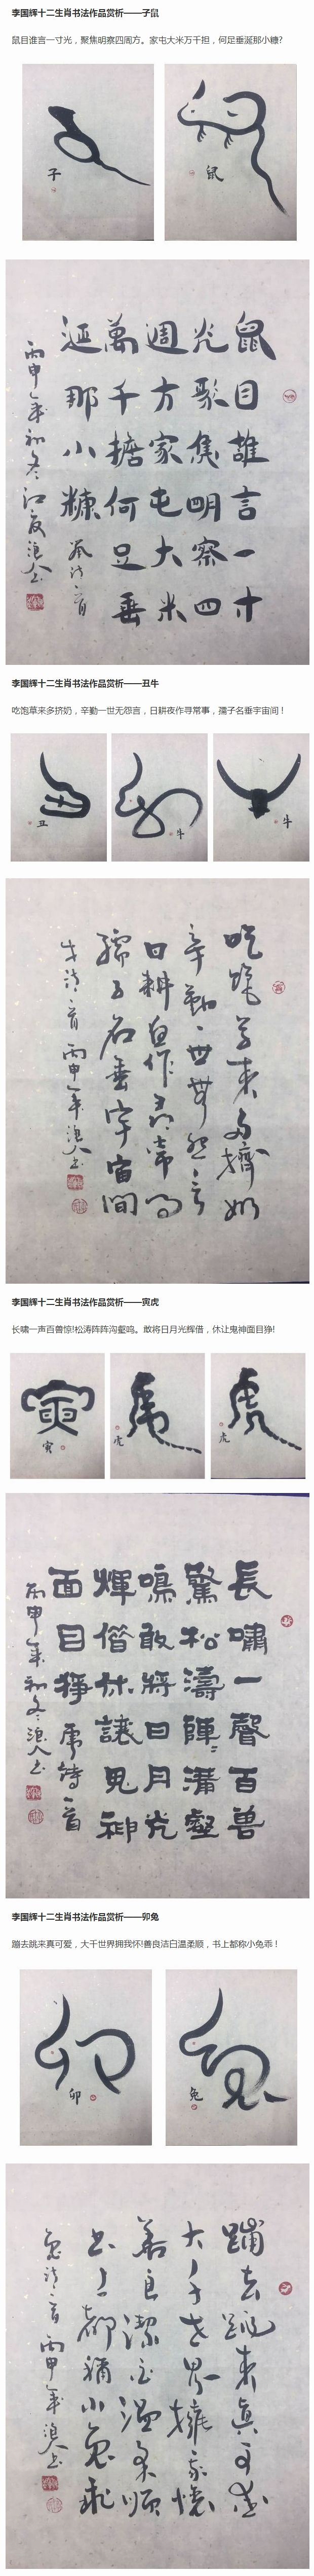 李国辉十二生肖书法作品赏析——子鼠
鼠目谁言一寸光，聚焦明察四周方。家屯大米万千担，何足垂涎那小糠?
子
鼠
鼠目誰言一寸
光聚焦明察四
週方家屯大米
萬千擔何足垂
涎那小糠 鼠詩一首
丙申年初冬江夏浪人書
李国辉十二生肖书法作品赏析——丑牛
吃饱草来多挤奶，辛勤一世无怨言，日耕夜作寻常事，孺子名垂宇宙间！
丑
牛
牛
吃飽草来多擠奶
辛勤一世無怨言
日耕夜作尋常事
孺子名垂宇宙間
牛詩一首 丙申年浪人書
李国辉十二生肖书法作品赏析——寅虎
长啸一声百兽惊!松涛阵阵沟壑鸣。敢将日月光辉借，休让鬼神面目狰!
寅
虎
虎
長嘯一聲百兽
驚松濤陣陣溝壑
鳴敢將日月光
輝借休讓鬼神
面目猙 虎詩一首
丙申年初冬浪人書
李国辉十二生肖书法作品赏析——卯兔
蹦去跳来真可爱，大千世界拥我怀!善良洁白温柔顺，书上都称小兔乖！
卯
兔
蹦去跳来真可愛
大千世界擁我懷
善良潔白温柔順
書上都稱小兔乖
兔詩一首 丙申年浪人書